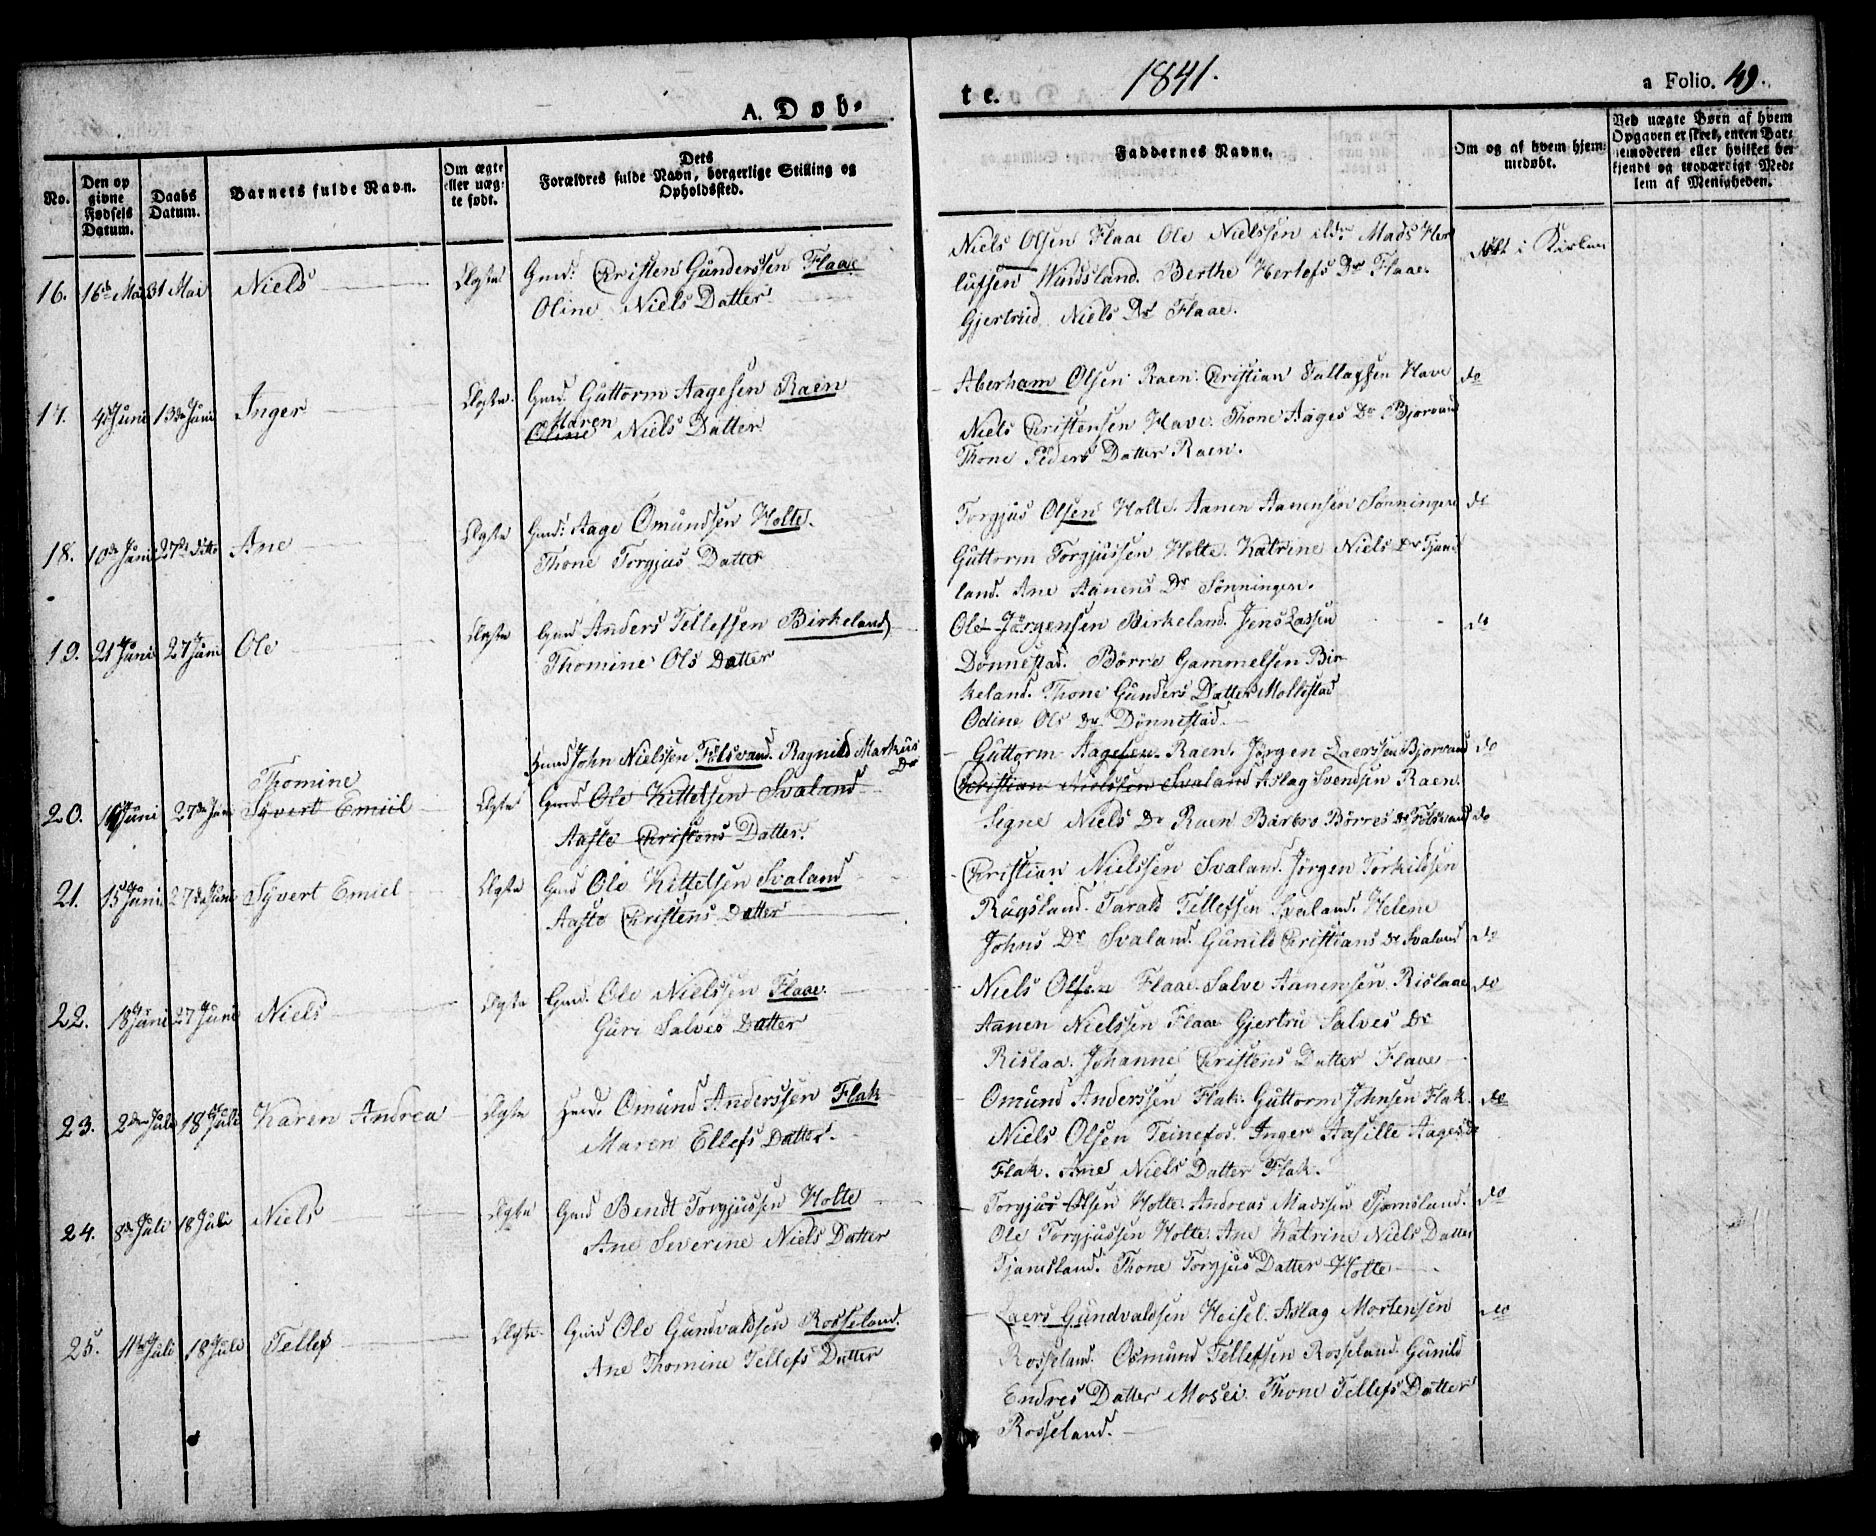 A. Døb-
te.
1841.
a Folio. 49.
No.
Den op
givne
Fødsels
Datum.
Daabs
Datum.
Barnets fulde Navn.
Om ægte
eller uæg-
te født.
Dets
Forældres fulde Navn, borgerlige Stilling og
Opholdssted.
Faddernes Navne.
Om og af hvem hjem-
medøbt.
Ved uægte Børn af hvem
Opgaven er skeet, enten Bar-
nemoderen eller hvilket be-
kjendt og troværdigt Med-
lem af Menigheden.
16. 16de Mai 31 Mai Niels Ægte Gmd: Christen Gundersen Flaae
Oline Niels Datter
Niels Olsen Flaae Ole Nielssen ibd: Mads Her
lufsen Windsland. Berthe Herlofs Dr Flaae.
Gjertrud Niels Dr Flaae.
døbt i Kirken
17. 4de Juni 13de Juni Inger Ægte. Gmd. Guttorm Aagesen Raen
Maren
Oline Niels Datter
Aberham Olsen Raen. Christian Tallagsen Have
Niels Christensen Have. Thone Aages Dr Bjorvand
Thone Peders Datter Raen.
do
18. 10de Juni 27de ditto Ane Ægte Gmd: Aage Omundsen Holte.
Thone Torgjus Datter
Torgjus Olsen Holte. Aanen Aanensen Sønningene
Guttorm Torgjussen Holte. Katrine Niels Dr Tjams
land. Ane Aanens Dr Sønningen.
do
19. 21de Juni 27 Juni Ole Ægte Gmd Anders Tellefsen Birkeland
Thomine Ols Datter
Ole Jørgensen Birkeland. Jens Lassen
Dønnestad. Børre Gammelsen Bir-
keland. Thone Gunders Datter Mollestad
Odine Ols Dr Dønnestad.
do
Hmd John Nielssen Fidsvand. Ragnild Markus
Dr
20. Juni 27de Juni Thomine
Syvert Emiil Ægte Gmd Ole Kittelsen Svaland
Aaste Christens Datter.
Guttorm Aagesen Raen. Jørgen Laerssen Bjorvand
Christian Nielssen Svaland Aslag Svendsen Raen.
Segne Niels Dr Raen Barbro Børres Dr Fidsvand
do
do
21. 15de Juni 27de Juni Syvert Emiel Ægte Gmd Ole Kittelsen Svaland
Aaste Christens Datter
Christian Nielssen Svaland. Jørgen Torkildsen
Rugsland. Tarald Tellefsen Svaland. Helene
Johns Dr Svaland. Gunild Christians Dr Svaland
do
22. 18de Juni 27 Juni Niels Ægte Gmd. Ole Nielssen Flaae.
Guri Salves Datter
Niels Olsen Flaae. Salve Aanensen Rislaae
Aanen Nielssen Flaae Gjertru Salves Dr
Rislaa. Johanne Christens Datter Flaae
do
23. 2den Juli 18de Juli Karen Andrea Ægte Hmd. Omund Anderssen Flak
Maren Ellefs Datter.
Omund Anderssen Flak. Guttorm Johnsen Flak.
Niels Olsen Teinefos. Inger Aasille Aages Dr
Flak. Ane Niels Datter Flak.
do
24. 8de Juli 18 Juli Niels Ægte Gmd Bendt Torgjussen Holte
Ane Severine Niels Datter
Torgjus Olsen Holte. Andreas Madssen Tjomsland.
Ole Torgjussen Holte. Ane Katrine Niels Datter
Tjamsland. Thone Torgjus Datter Holte
do
25. 11te Juli 18 Juli Tellef Ægte. Gmd Ole Gundvaldsen Rosseland.
Ane Thomine Tellefs Datter
Laers Gundvaldsen Heisel. Aslag Mortensen
Rosseland. Osmund Tellefsen Rosseland. Gunild
Endres Datter Mosei. Thone Tellefs Datter
Rosseland.
do